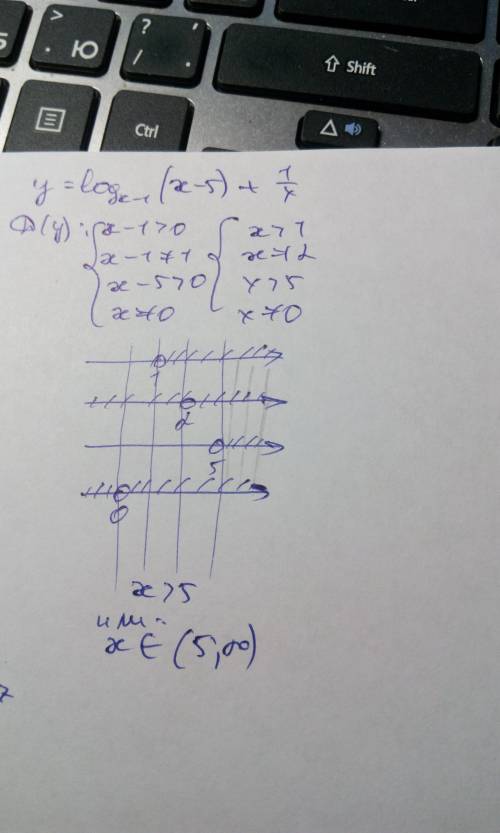 >
. Ю
? '
/ .
⇧ Shift
Ctrl
y = log_{x-1} (x-5) + 1/x
D(y): { x-1>0 { x>1
x-1≠1 x≠2
x-5>0 x>5
x≠0 x≠0
1
2
5
0
x>5
или:
x ∈ (5,∞)